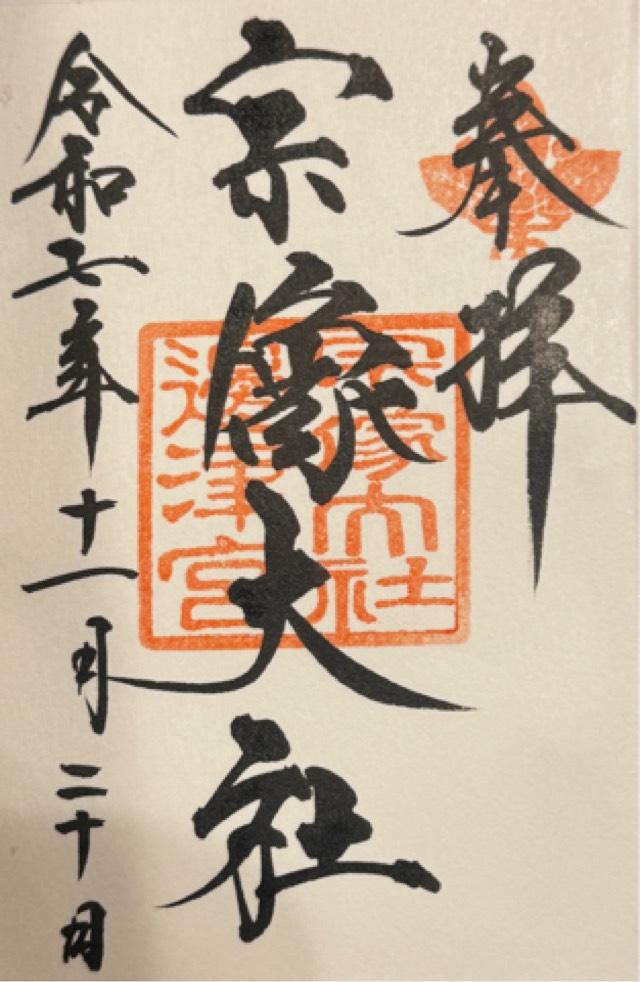 奉拝
宗像大社
宗像大社
邊津宮
令和七年十一月二十日